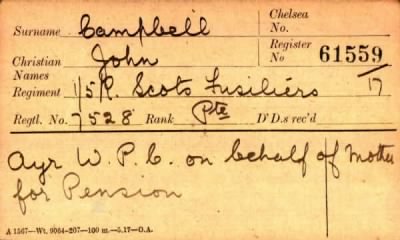 Surname Campbell Chelsea No.
Christian Names John Register No 61559/17
Regiment 1/5 R. Scots Fusiliers
Regtl. No. 7528 Rank Pte D'D.s rec'd
Ayr W.P.C. on behalf of Mother
for Pension
A 1567—Wt. 9064-207—100 m.—5.17—O.A.